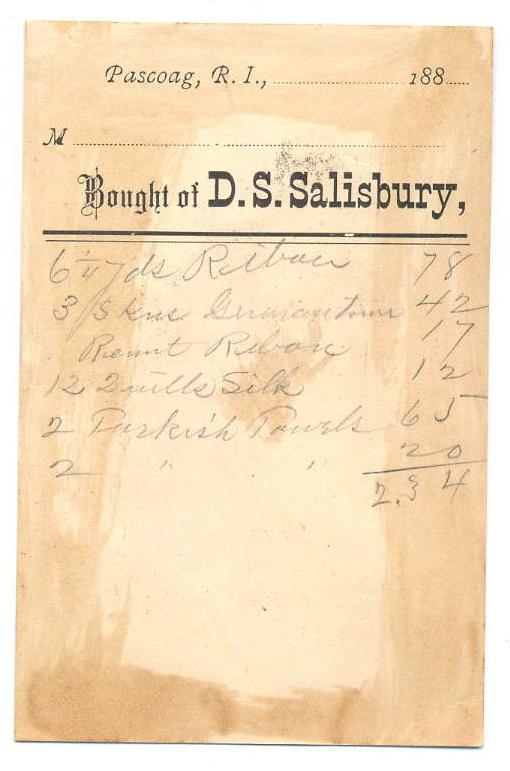 Pascoag, R. I., 188
M
Bought of D. S. Salisbury,
6 1/4 Yds Ribon 78
3 Skns Germantown 42
Remt Ribon 17
12 Quills Silk 12
2 Turkish Towels 65
2 " " 20
2.34